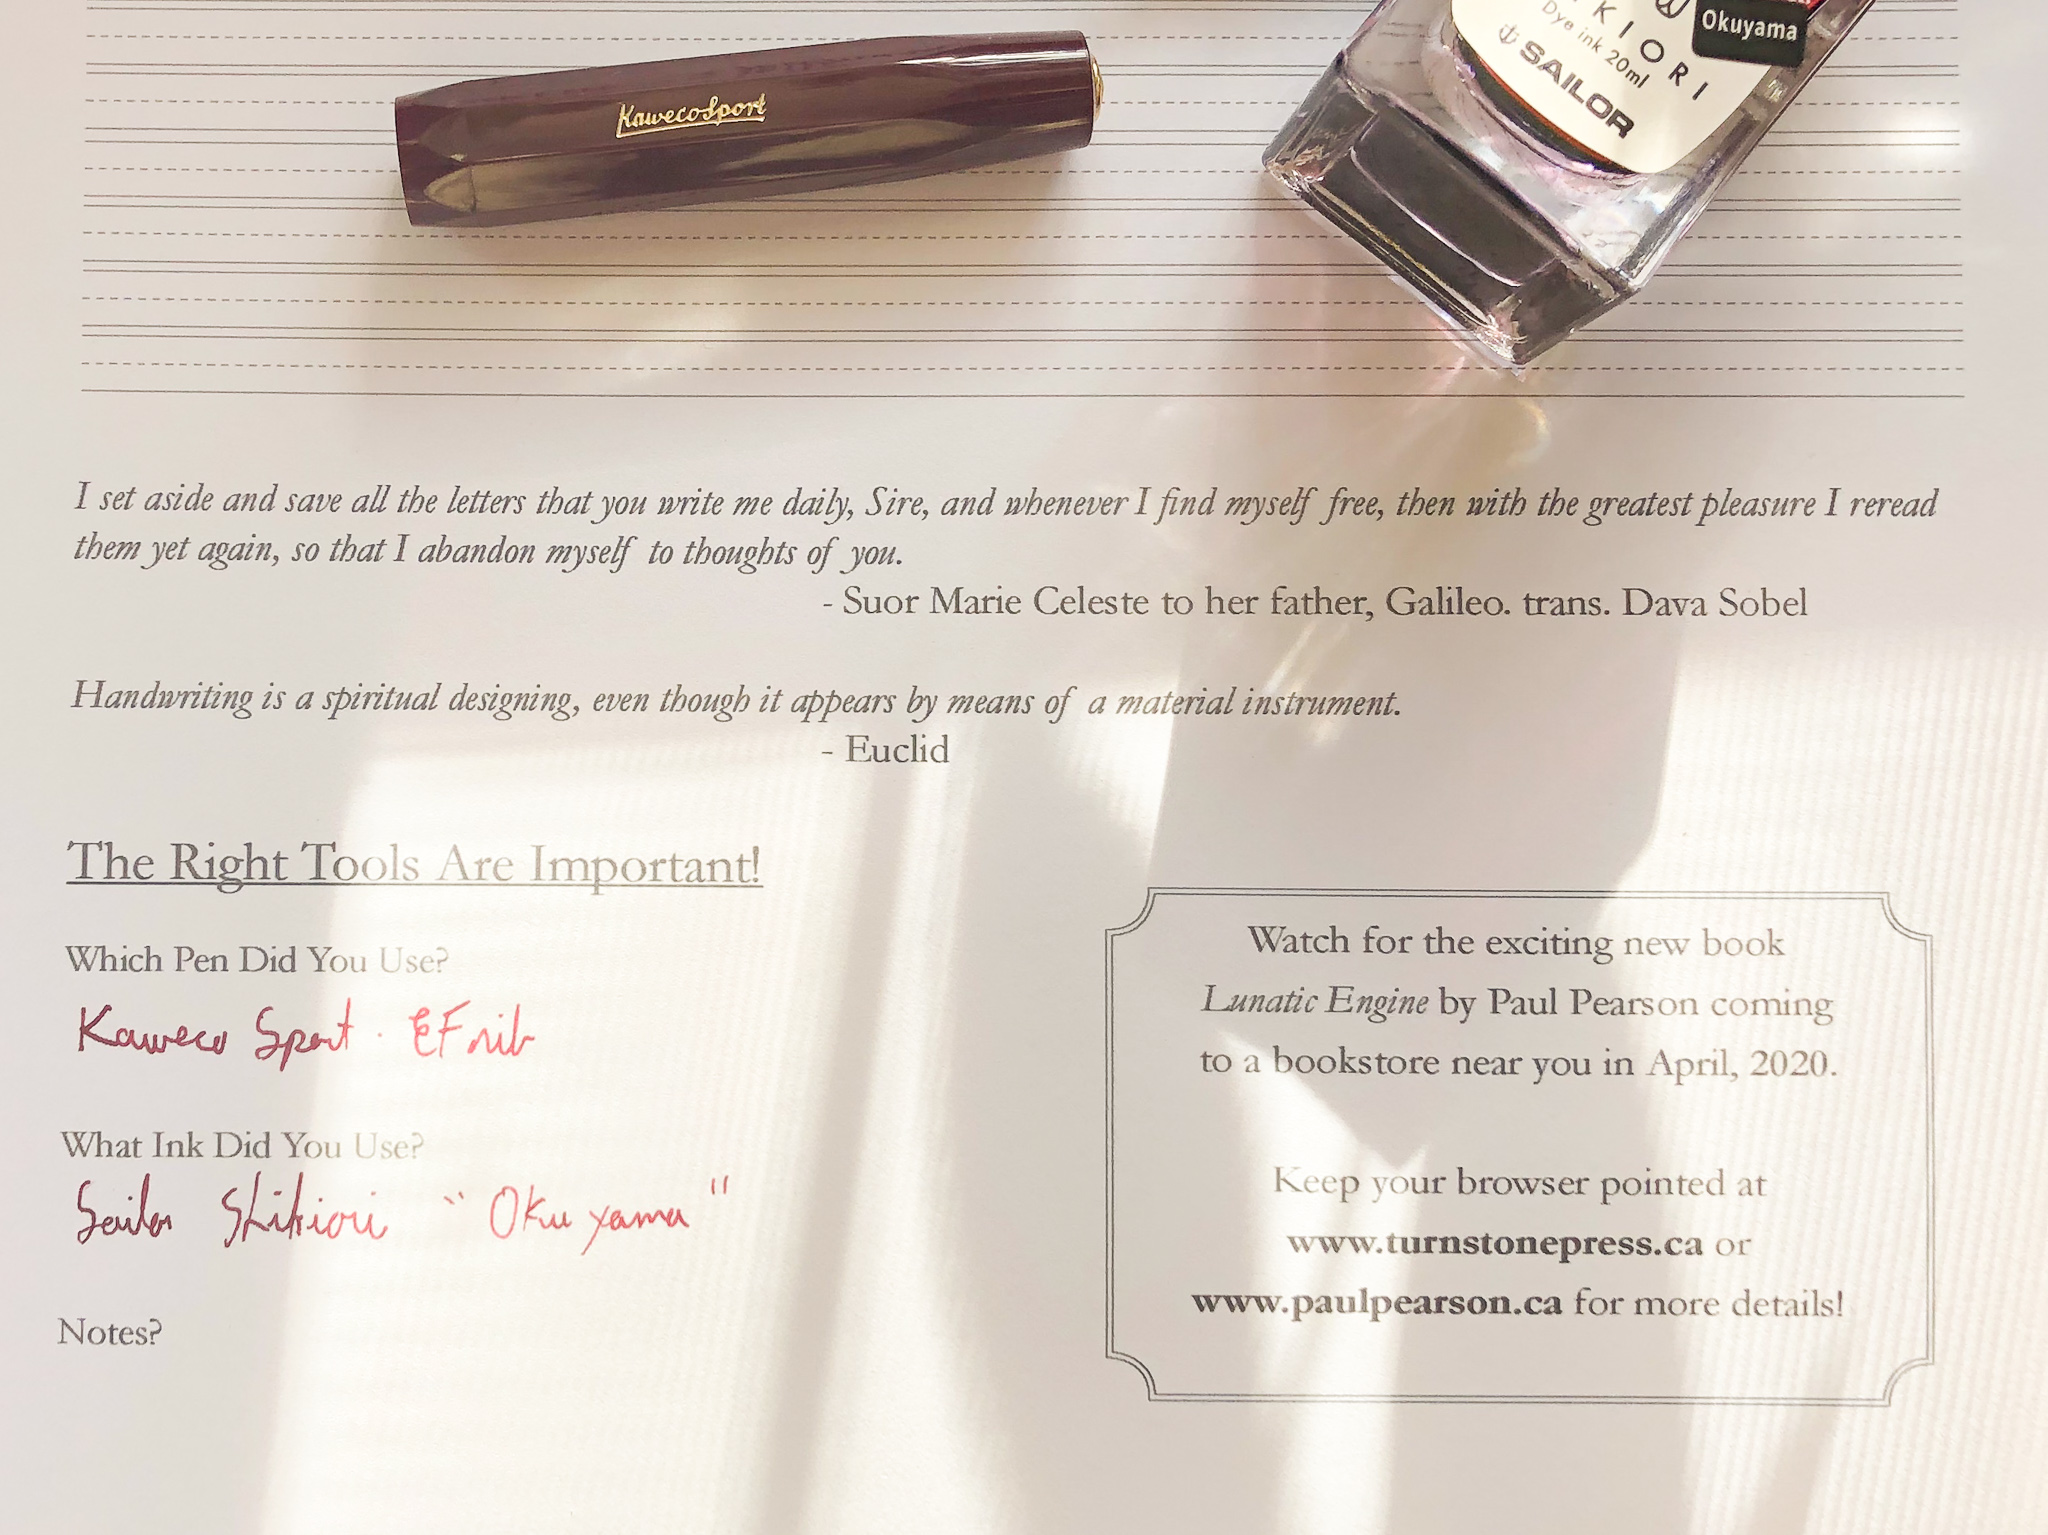 KawecoSport
Okuyama
KIORI
Dye ink 20ml
SAILOR
I set aside and save all the letters that you write me daily, Sire, and whenever I find myself free, then with the greatest pleasure I reread
them yet again, so that I abandon myself to thoughts of you.
- Suor Marie Celeste to her father, Galileo. trans. Dava Sobel
Handwriting is a spiritual designing, even though it appears by means of a material instrument.
- Euclid
The Right Tools Are Important!
Which Pen Did You Use?
Kaweco Sport · EF nib
What Ink Did You Use?
Sailor Shikiori "Okuyama"
Notes?
Watch for the exciting new book
Lunatic Engine by Paul Pearson coming
to a bookstore near you in April, 2020.
Keep your browser pointed at
www.turnstonepress.ca or
www.paulpearson.ca for more details!